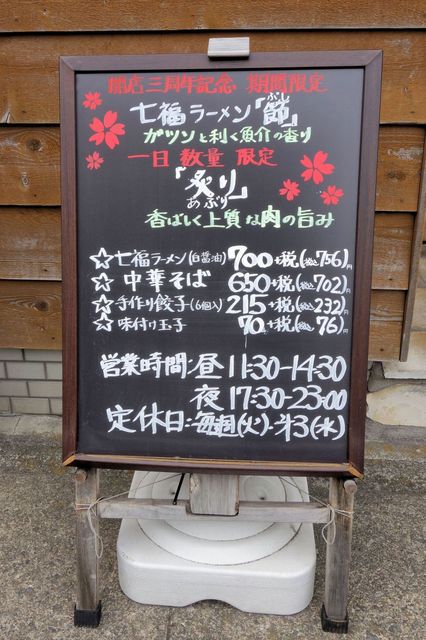 開店三周年記念 期間限定
七福ラーメン「節」
ぶし
ガツンと利く魚介の香り
一日 数量 限定
「炙り」
あぶり
香ばしく上質な肉の旨み
☆七福ラーメン(白醤油)700+税(税込756)円
☆中華そば 650+税(税込702)円
☆手作り餃子(6個入)215+税(税込232)円
☆味付け玉子 70+税(税込76)円
営業時間:昼11:30-14:30
夜17:30-23:00
定休日:毎週(火)-第3(水)